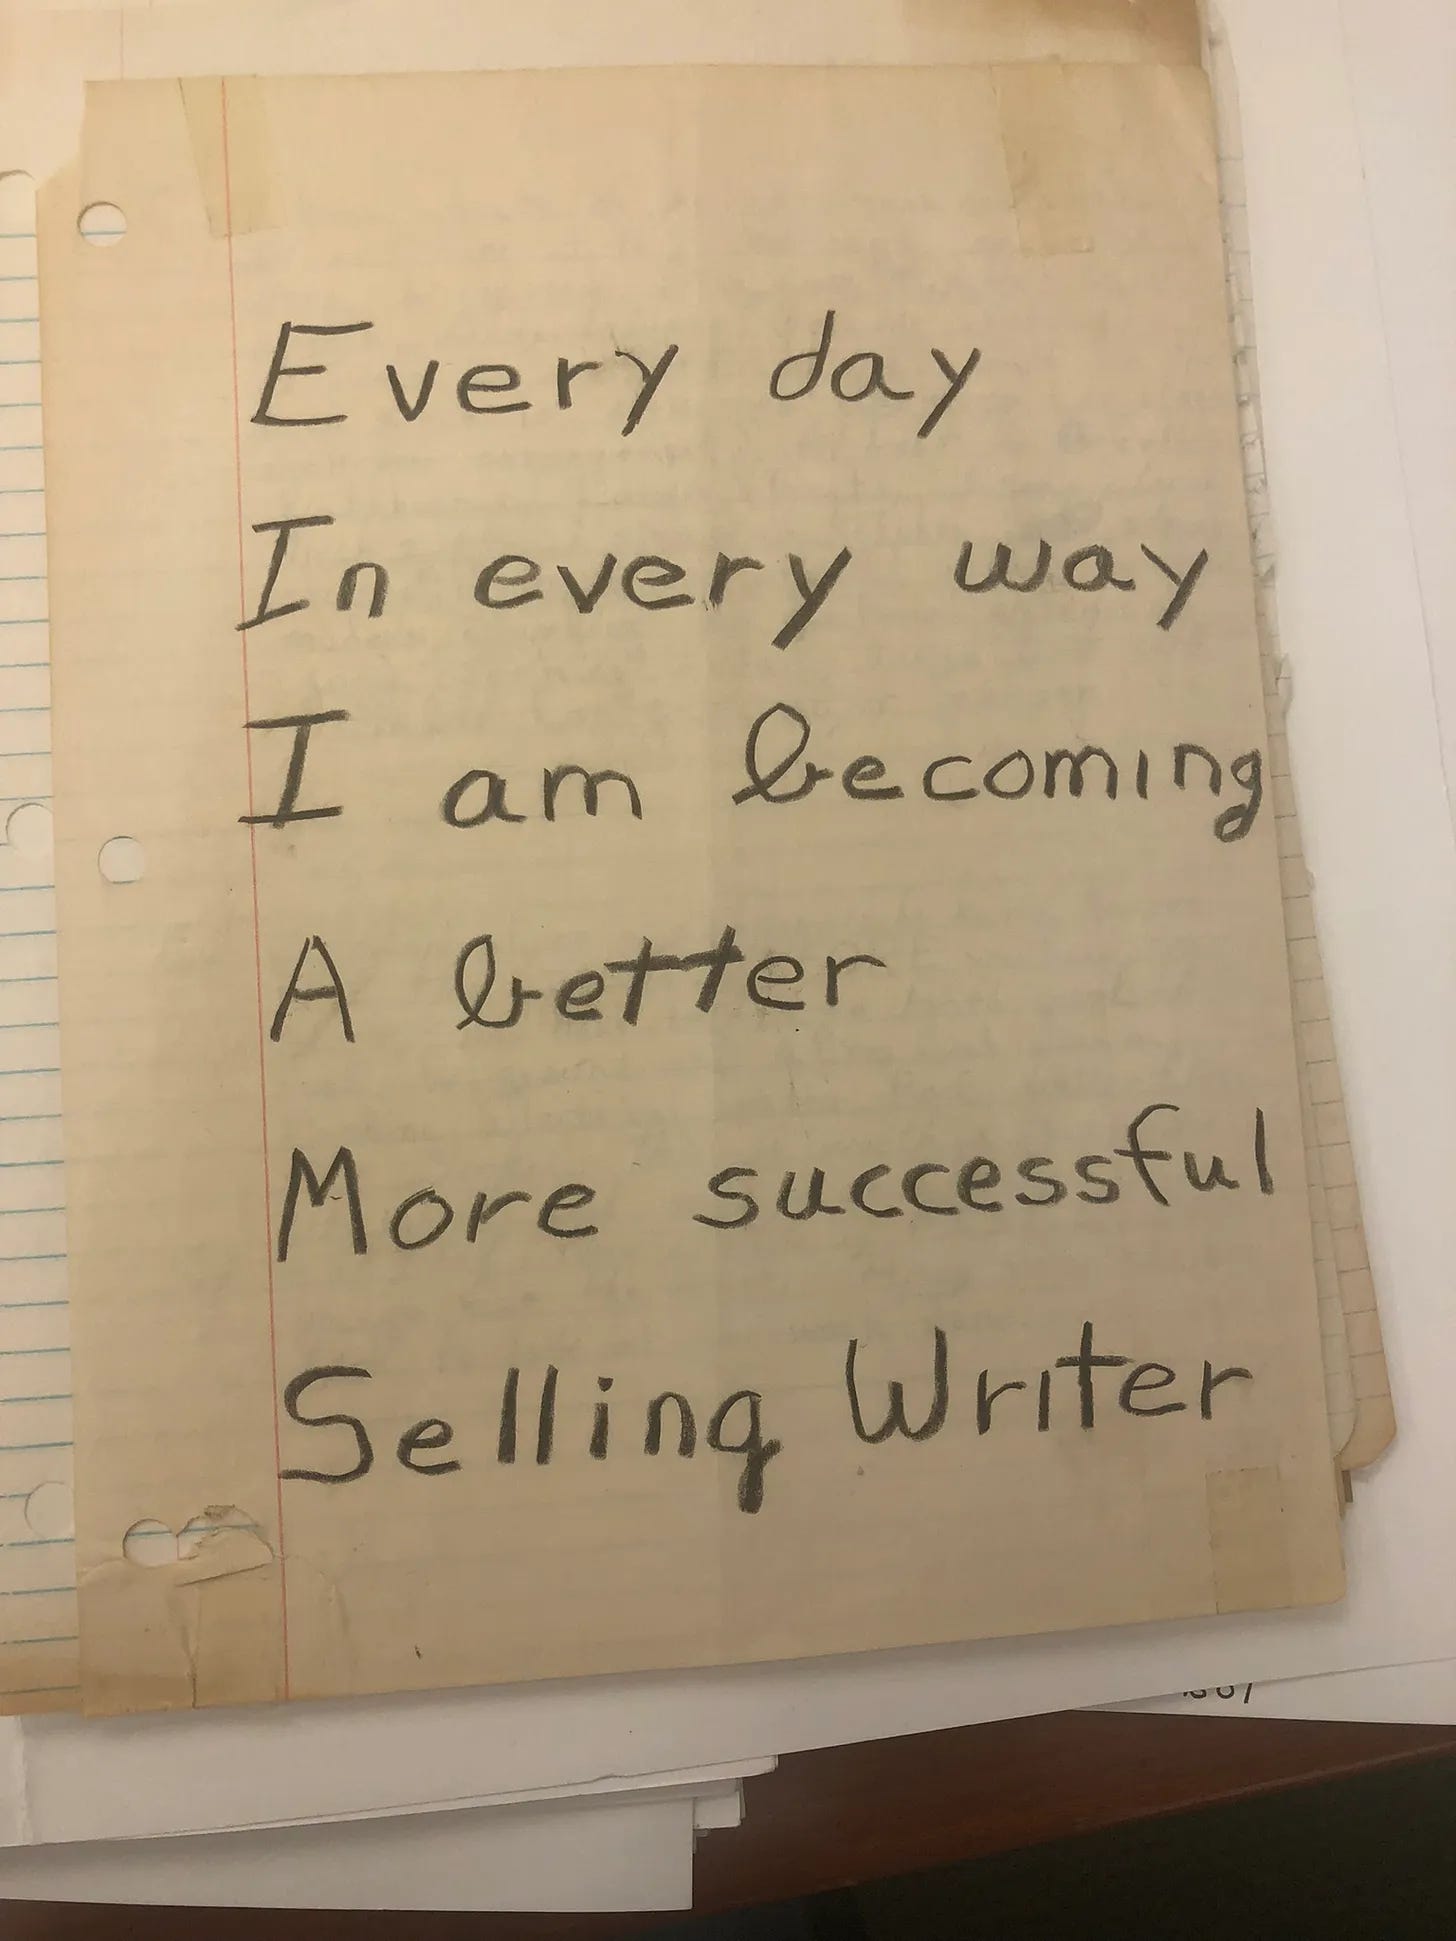 Every day
In every way
I am becoming
A better
More successful
Selling Writer